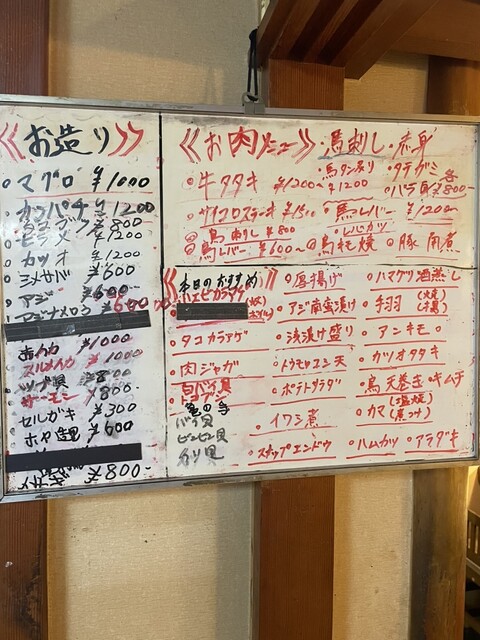 《お造り》
マグロ ¥1000
カンパチ ¥1200
¥800
ヒラメ ¥1200
カツオ ¥1200
シメサバ ¥600
アジ ¥600
アジナメロウ ¥600
赤イカ ¥1000
スルメイカ ¥1000
ツブ貝 ¥800
サーモン ¥800
セルガキ ¥300
ホヤ造里 ¥600
¥800-
《お肉メニュー》
馬刺し・赤身
牛タタキ ¥1200〜
馬タン炙り ¥1200
タテガミ
バラ 各¥800-
サイコロステーキ ¥1500
馬レバー ¥1200〜
鳥肉刺し ¥800
レバカツ
鳥レバー ¥600〜
鳥モモ焼
豚角煮
《本日のおすすめ》
タコカラアゲ
肉ジャガ
白バイ貝
ドヨブシ
亀の手
バラ貝
ホンビン貝
ホリ貝
厚揚げ
アジ南蛮漬け
浅漬け盛り
トウモロコシ天
ポテトサラダ
イワシ煮
スナップエンドウ
ハマグリ酒蒸し
手羽(焼)(揚)
アンキモ
カツオタタキ
鳥天巻き・キムチ
カマ(塩焼)(煮つけ)
ハムカツ・アラダキ